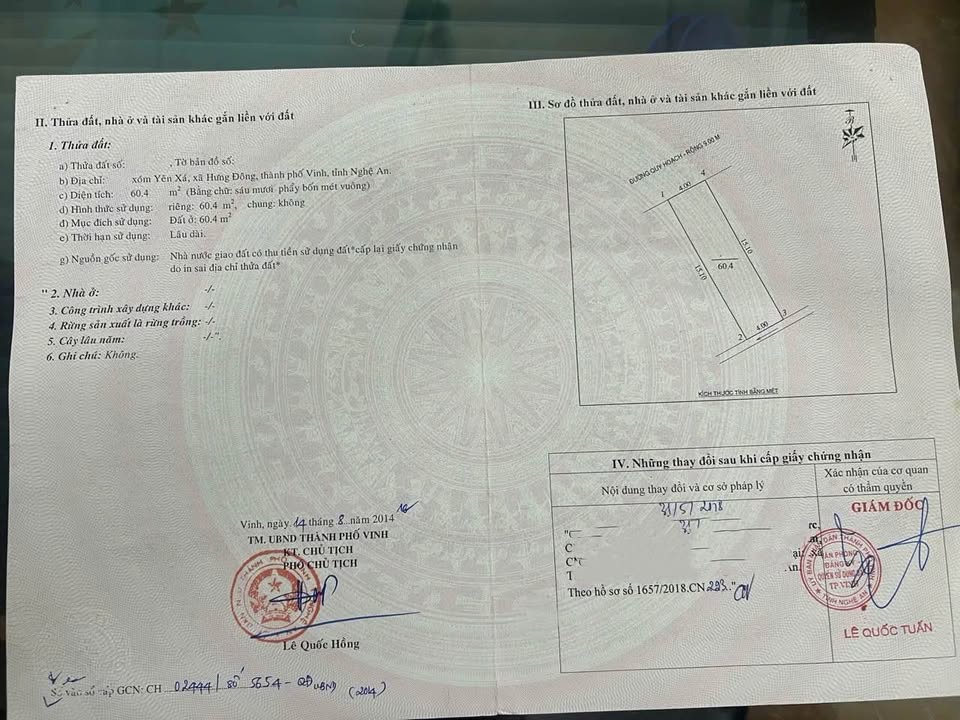 II. Thửa đất, nhà ở và tài sản khác gắn liền với đất
1. Thửa đất:
a) Thửa đất số: , Tờ bản đồ số:
b) Địa chỉ: xóm Yên Xá, xã Hưng Đông, thành phố Vinh, tỉnh Nghệ An.
c) Diện tích: 60.4 m² (Bằng chữ: sáu mươi phẩy bốn mét vuông)
d) Hình thức sử dụng: riêng: 60.4 m², chung: không
đ) Mục đích sử dụng: Đất ở: 60.4 m²
e) Thời hạn sử dụng: Lâu dài.
g) Nguồn gốc sử dụng: Nhà nước giao đất có thu tiền sử dụng đất*cấp lại giấy chứng nhận
do in sai địa chỉ thửa đất*
" 2. Nhà ở: -/-
3. Công trình xây dựng khác: -/-
4. Rừng sản xuất là rừng trồng: -/-
5. Cây lâu năm: -/-".
6. Ghi chú: Không.
Vinh, ngày 14 tháng 8 năm 2014
TM. UBND THÀNH PHỐ VINH
KT. CHỦ TỊCH
PHÓ CHỦ TỊCH
Lê Quốc Hồng
Số vào sổ cấp GCN: CH 02444/ số 5654 - QĐ UBND (2014)
III. Sơ đồ thửa đất, nhà ở và tài sản khác gắn liền với đất
B
ĐƯỜNG QUY HOẠCH - RỘNG 9.00 M
1 4.00 4
15.10
15.10
60.4
2 4.00 3
KÍCH THƯỚC TÍNH BẰNG MÉT
IV. Những thay đổi sau khi cấp giấy chứng nhận
Nội dung thay đổi và cơ sở pháp lý
Xác nhận của cơ quan
có thẩm quyền
31/5/2018
GIÁM ĐỐC
Theo hồ sơ số 1657/2018.CN 223."
VĂN PHÒNG
ĐĂNG KÝ
QUYỀN SỬ DỤNG ĐẤT
TP VINH
LÊ QUỐC TUẤN